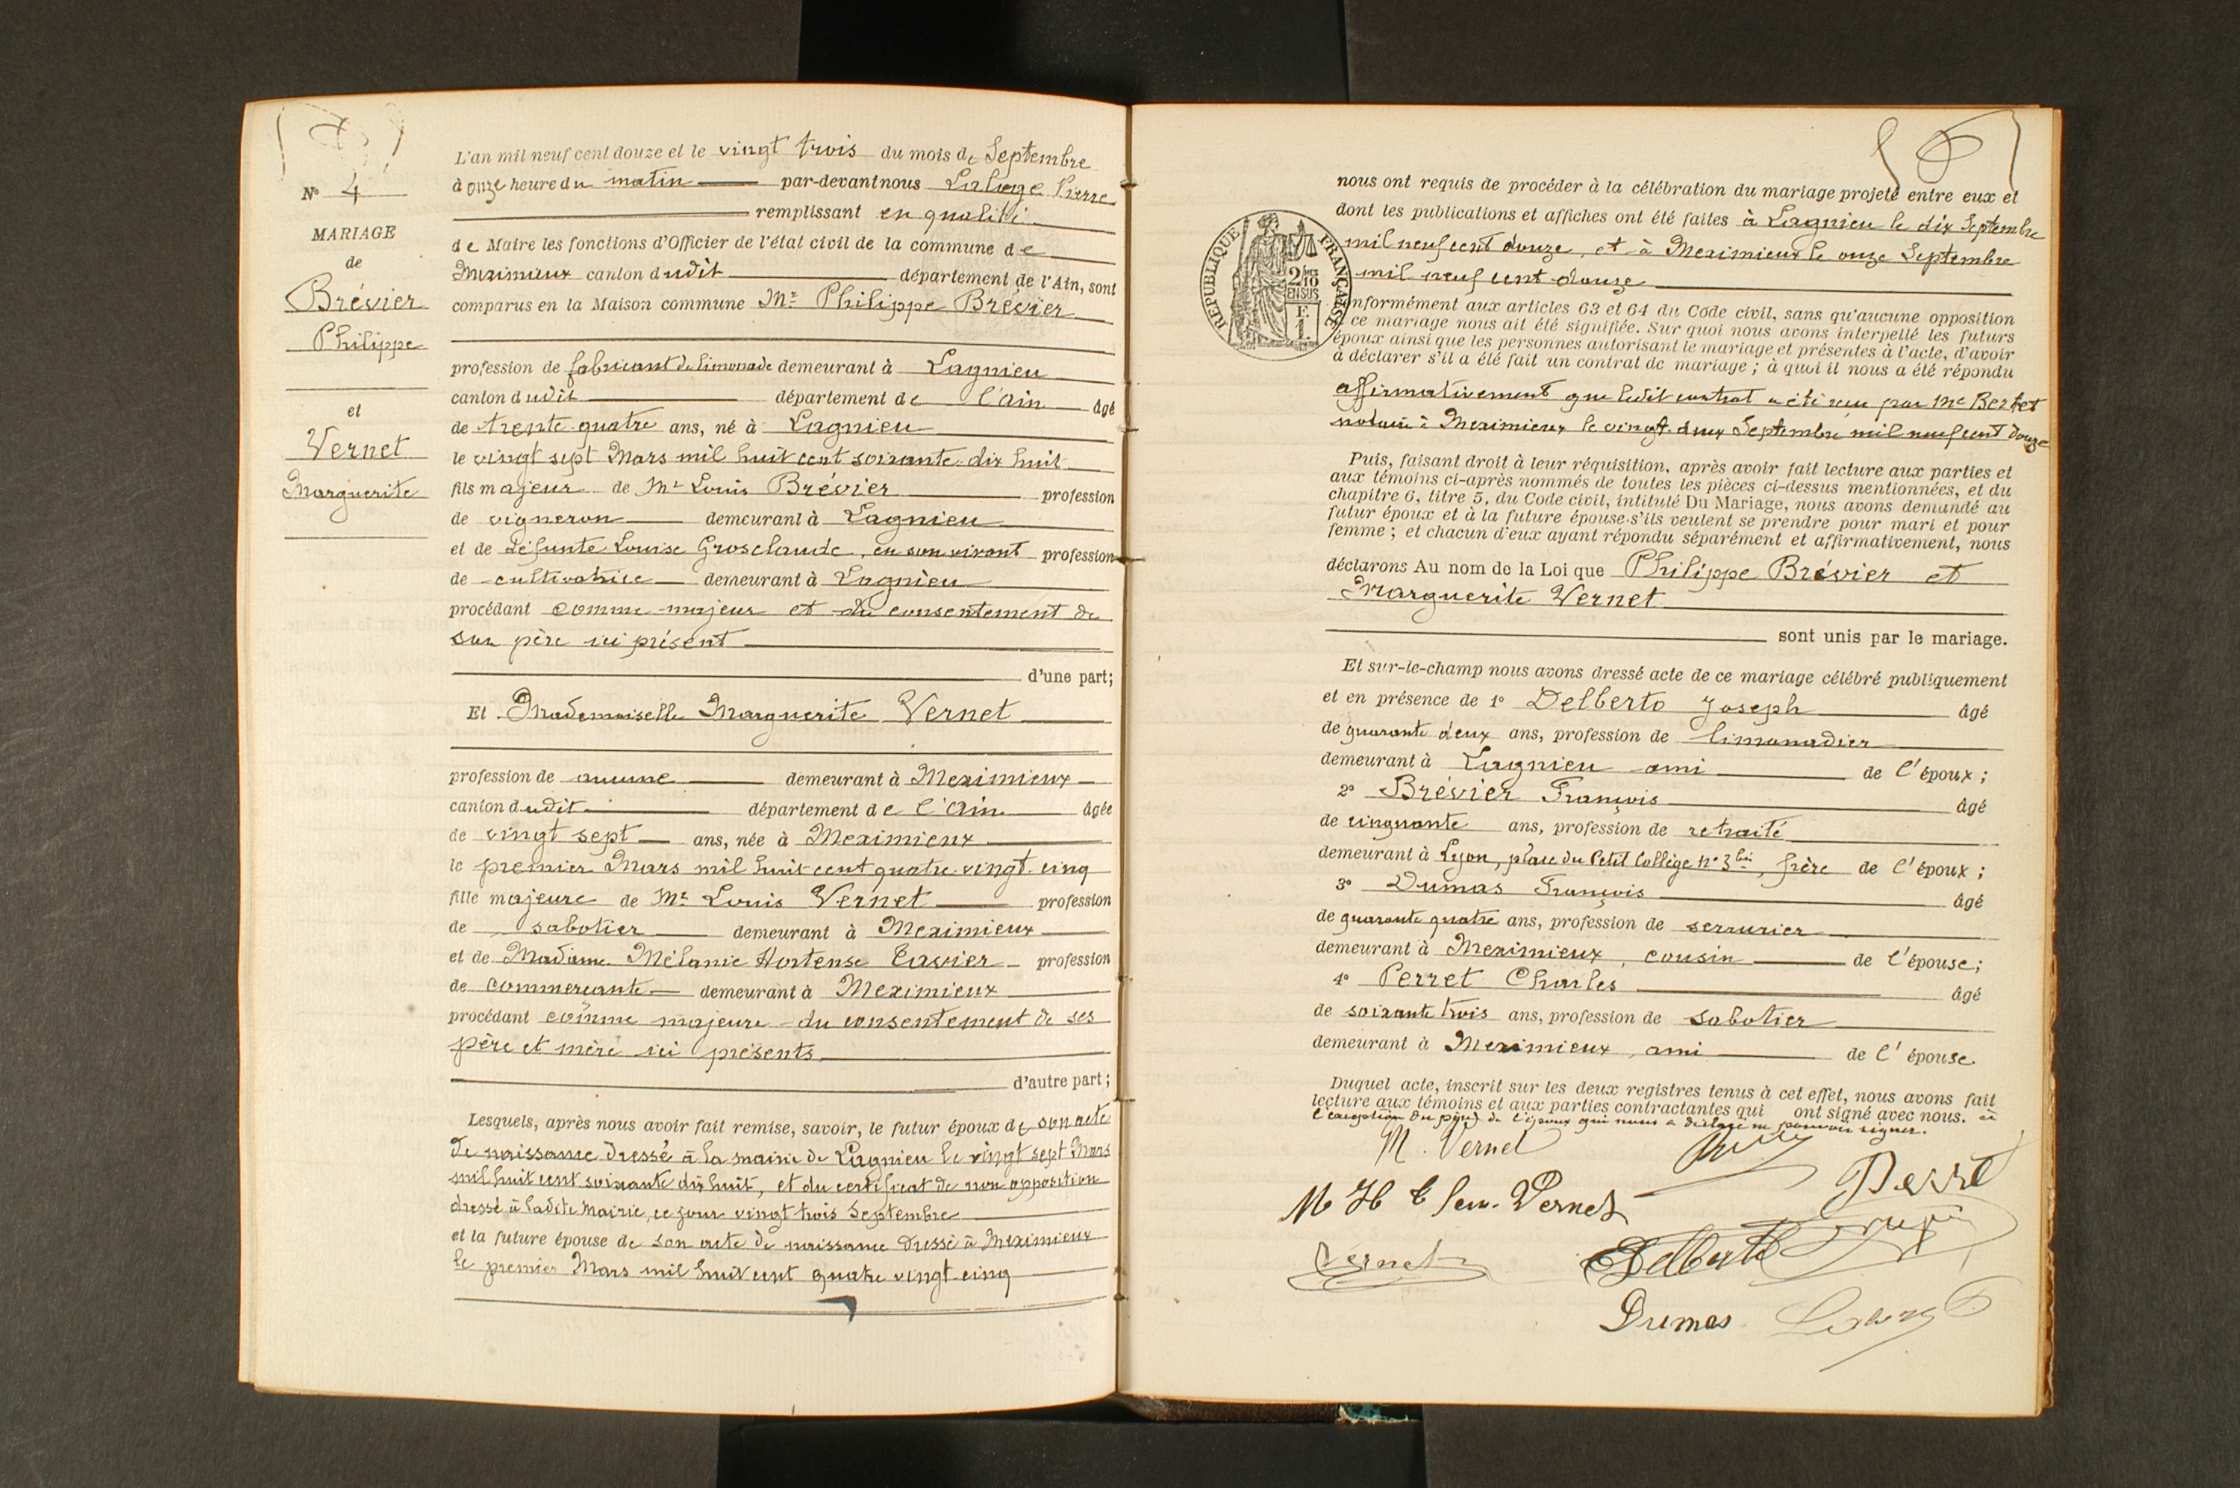 N° 4
MARIAGE
de
Brévier
Philippe
et
Vernet
Marguerite
L'an mil neuf cent douze et le vingt trois du mois de Septembre
à onze heure du matin par-devant nous Pierre
remplissant en qualité
de Maire les fonctions d'Officier de l'état civil de la commune de
Meximieux canton dudit département de l'Ain, sont
comparus en la Maison commune Mr Philippe Brévier
profession de fabricant de limonade demeurant à Lagnieu
canton dudit département de l'ain âgé
de trente quatre ans, né à Lagnieu
le vingt sept Mars mil huit cent soixante dix huit
fils majeur de Mr Louis Brévier profession
de vigneron demeurant à Lagnieu
et de défunte Louise Grosclaude, en son vivant profession
de cultivatrice demeurant à Lagnieu
procédant comme majeur et du consentement de
son père ici présent
d'une part;
Et Mademoiselle Marguerite Vernet
profession de aucune demeurant à Meximieux
canton dudit département de l'Ain âgée
de vingt sept ans, née à Meximieux
le premier Mars mil huit cent quatre vingt cinq
fille majeure de Mr Louis Vernet profession
de sabotier demeurant à Meximieux
et de Madame Mélanie Hortense profession
de commerçante demeurant à Meximieux
procédant comme majeure du consentement de ses
père et mère ici présents
d'autre part;
Lesquels, après nous avoir fait remise, savoir, le futur époux de son acte
de naissance dressé à la mairie de Lagnieu le vingt sept Mars
mil huit cent soixante dix huit, et du certificat de non opposition
dressé à ladite Mairie, ce jour vingt trois Septembre
et la future épouse de son acte de naissance dressé à Meximieux
le premier Mars mil huit cent quatre vingt cinq
RÉPUBLIQUE FRANÇAISE
2/10
EN SUS
F.
1.
nous ont requis de procéder à la célébration du mariage projeté entre eux et
dont les publications et affiches ont été faites à Lagnieu le dix Septembre
mil neuf cent douze, et à Meximieux le onze Septembre
mil neuf cent douze
conformément aux articles 63 et 64 du Code civil, sans qu'aucune opposition
à ce mariage nous ait été signifiée. Sur quoi nous avons interpellé les futurs
époux ainsi que les personnes autorisant le mariage et présentes à l'acte, d'avoir
à déclarer s'il a été fait un contrat de mariage; à quoi il nous a été répondu
affirmativement que ledit contrat a été reçu par Me Bertet
notaire à Meximieux le vingt deux Septembre mil neuf cent douze
Puis, faisant droit à leur réquisition, après avoir fait lecture aux parties et
aux témoins ci-après nommés de toutes les pièces ci-dessus mentionnées, et du
chapitre 6, titre 5, du Code civil, intitulé Du Mariage, nous avons demandé au
futur époux et à la future épouse s'ils veulent se prendre pour mari et pour
femme; et chacun d'eux ayant répondu séparément et affirmativement, nous
déclarons Au nom de la Loi que Philippe Brévier et
Marguerite Vernet
sont unis par le mariage.
Et sur-le-champ nous avons dressé acte de ce mariage célébré publiquement
et en présence de 1° Delberto Joseph âgé
de quarante deux ans, profession de limonadier
demeurant à Lagnieu ami de l'époux;
2° Brévier François âgé
de cinquante ans, profession de retraité
demeurant à Lyon, place du Petit Collège n° 3 bis, frère de l'époux;
3° Dumas François âgé
de quarante quatre ans, profession de serrurier
demeurant à Meximieux, cousin de l'épouse;
4° Perret Charles âgé
de soixante trois ans, profession de sabotier
demeurant à Meximieux, ami de l'épouse.
Duquel acte, inscrit sur les deux registres tenus à cet effet, nous avons fait
lecture aux témoins et aux parties contractantes qui ont signé avec nous. à
l'exception du père de l'époux qui nous a déclaré ne pouvoir signer.
M. Vernet
Perret
Vernet
Vernet
Delberto
Dumas